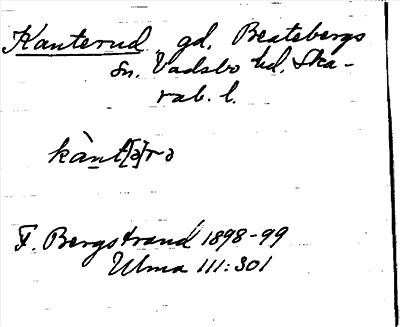 Kanterud, gd, Beatebergs
sn. Vadsbo hd. Ska-
rab. l.
kànt[ə]rə
F. Bergstrand 1898-99
Ulma 111:301